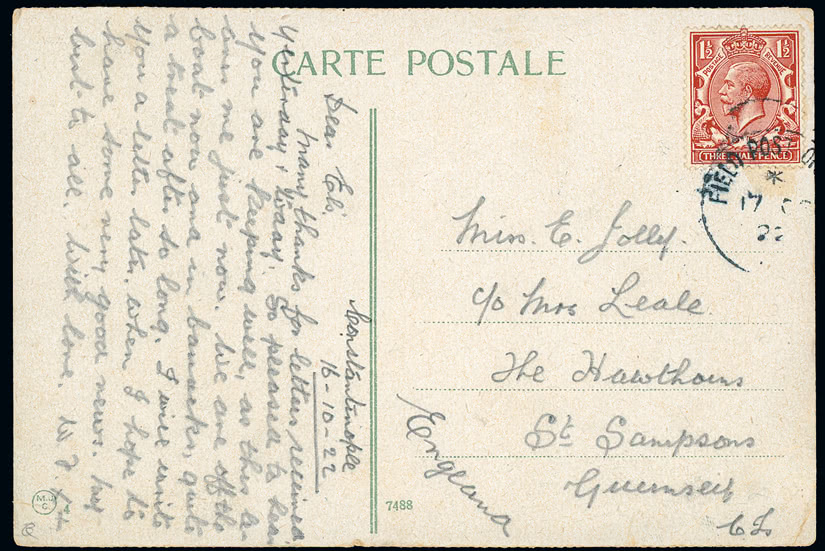 CARTE POSTALE
1½ 1½
POSTAGE REVENUE
THREE HALF PENCE
FIELD POST OF
*
17
22
Constantinople
16-10-22
Dear Els.
Many thanks for letters received
yesterday & today. So pleased to hear
you are keeping well, as this leaves
me just now. We are off the
boat now and in barracks, quite
a treat after so long. I will write
you a letter later, when I hope to
have some very good news.
but to all. With love.
Miss. E. Jolly.
c/o Mrs Leale.
The Hawthorns
St Sampsons
Guernsey
C.Is
England
M.J.C.
4
7488